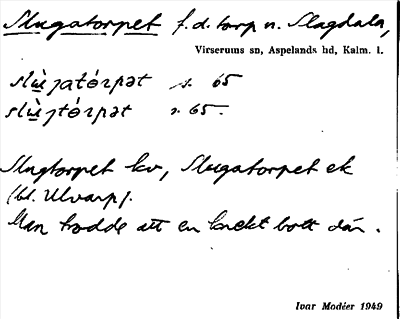 Slugatorpet f.d. torp u. Slagdala,
Virserums sn, Aspelands hd, Kalm. l.
slu̠̇gatórpət s. 65
slu̠̇gtórpət s. 65.
Slugtorpet kv, Slugatorpet ek
(bl. Ulvarp).
Man trodde att en knekt bott där.
Ivar Modéer 1949